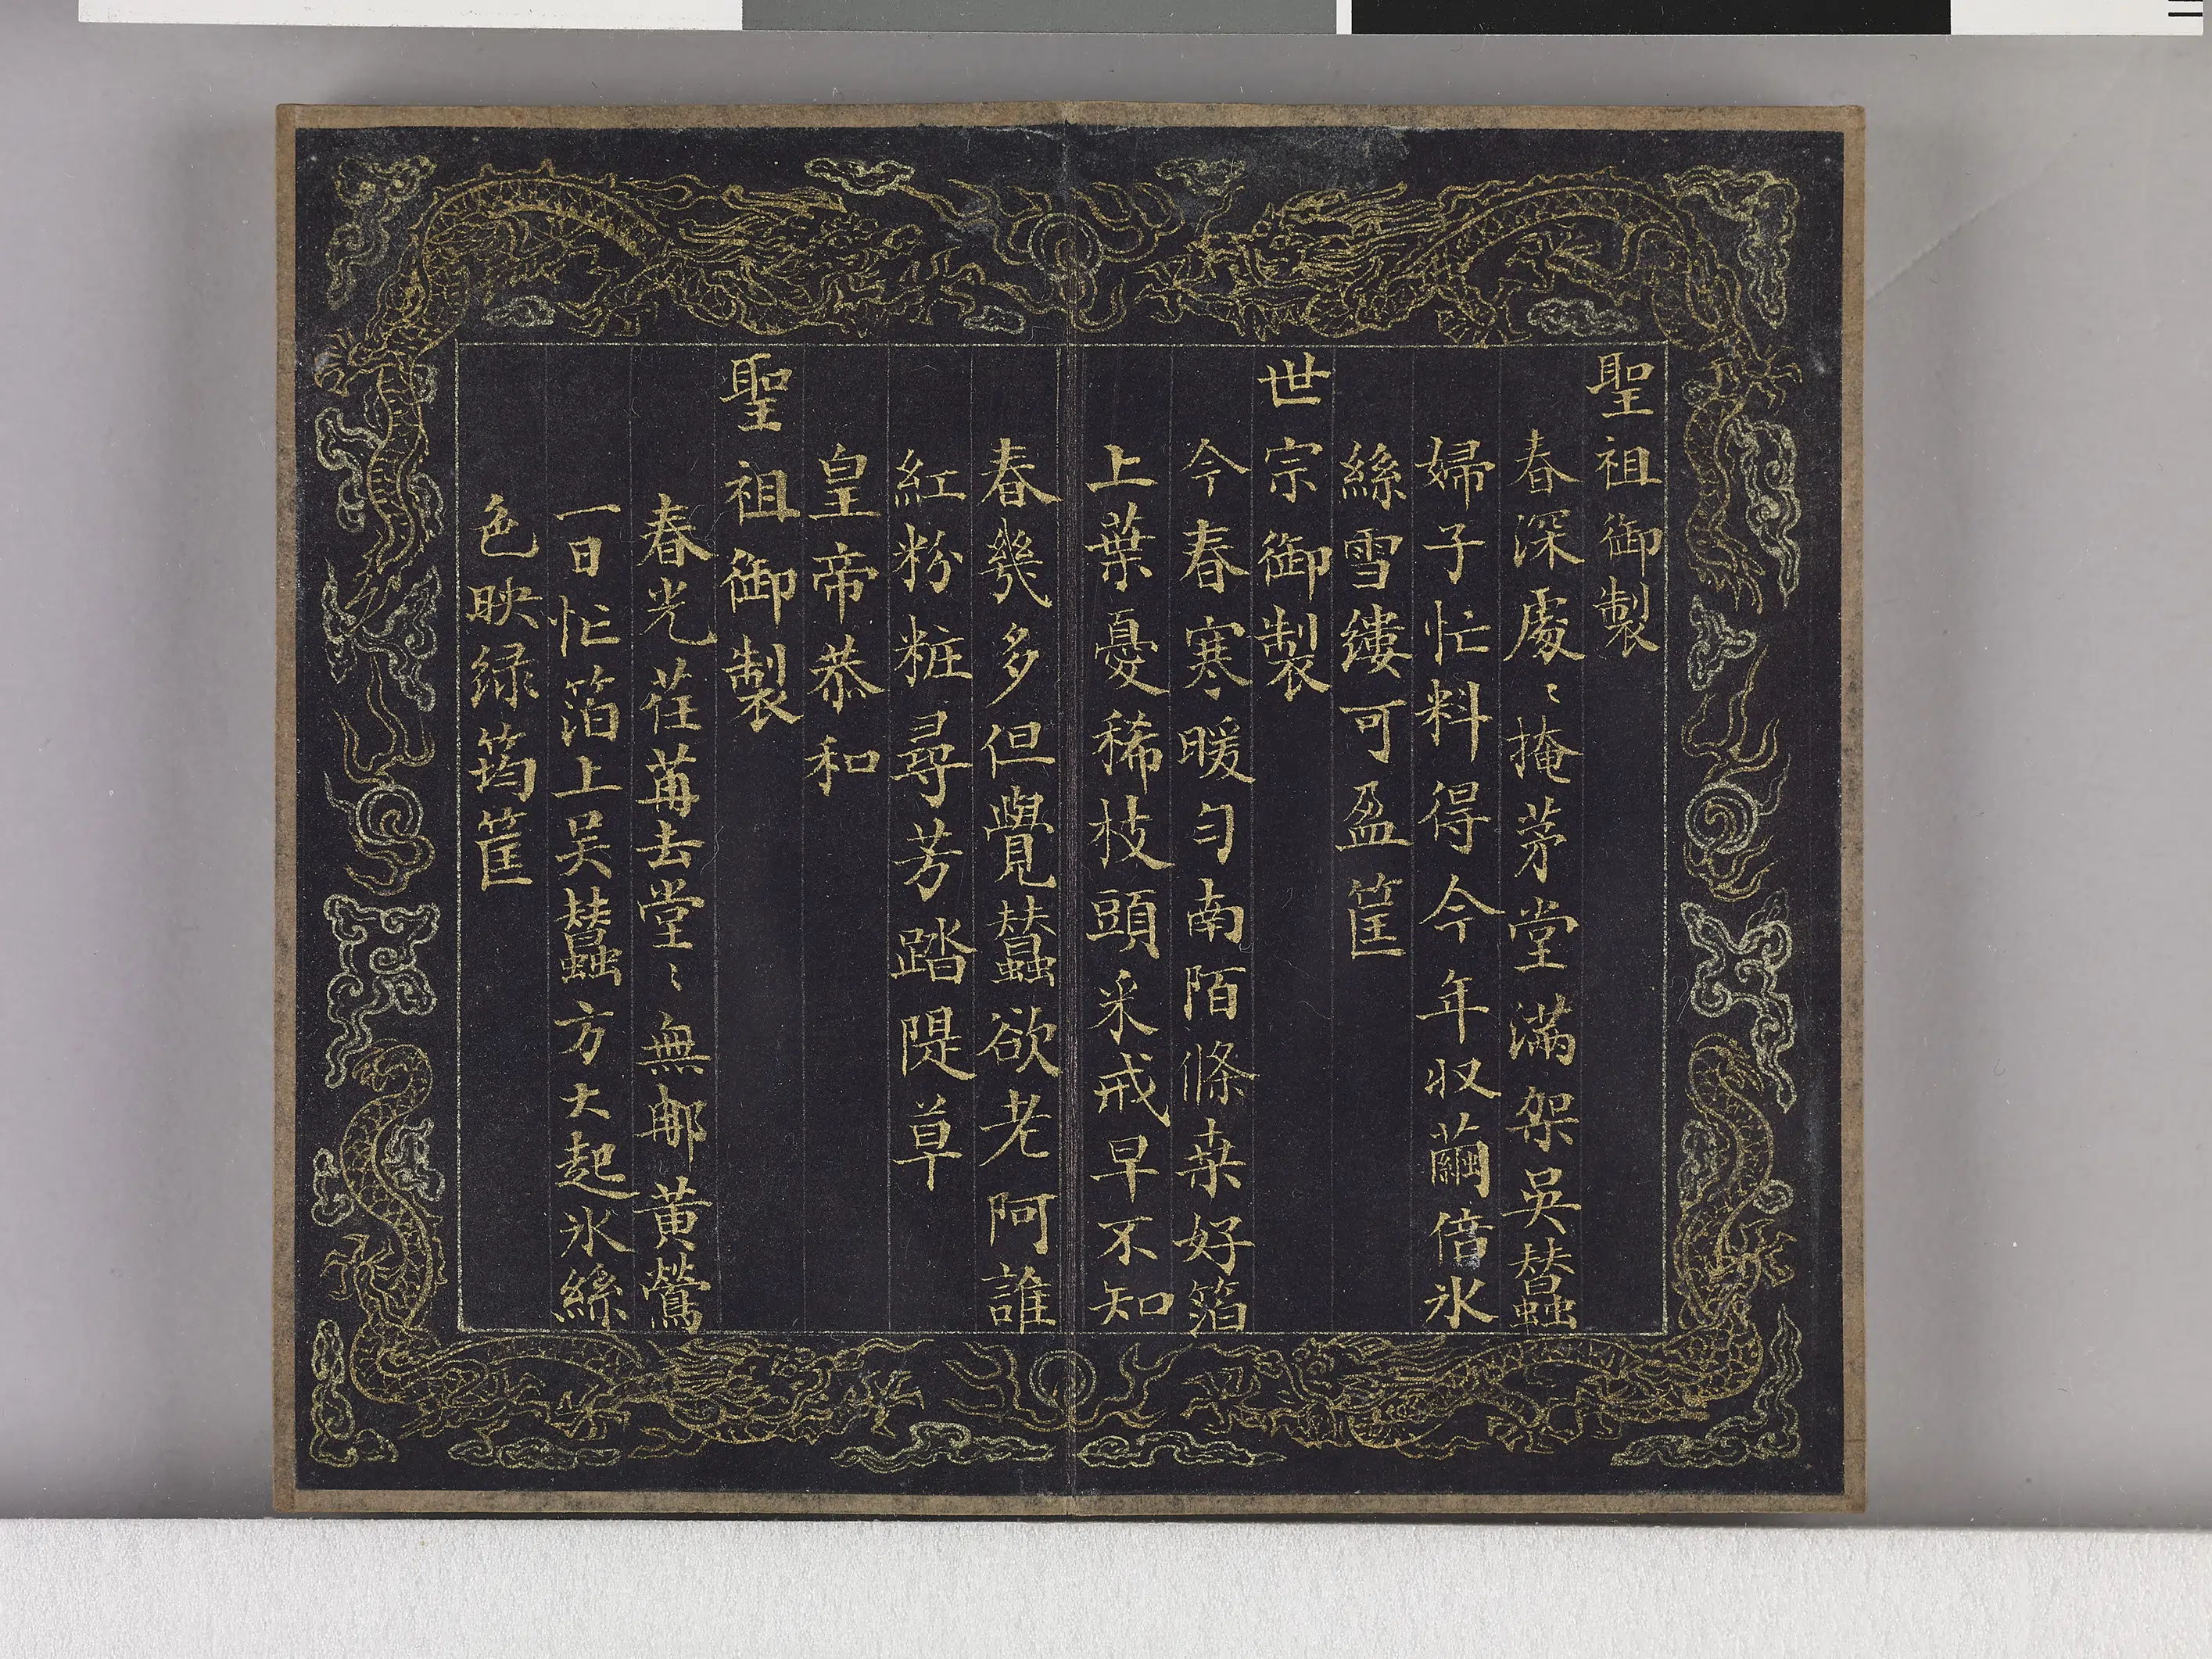 聖祖御製
春深處〻掩茅堂滿架吳蠶
婦子忙料得今年収繭倍氷
絲雪縷可盈筐
世宗御製
今春寒暖勻南陌條桒好箔
上葉憂稀枝頭采戒早不知
春幾多但覺蠶欲老阿誰
紅粉粧尋芳踏隄草
皇帝恭和
聖祖御製
春光荏苒去堂〻無郍黃鶯
一日忙箔上吴蠶方大起氷絲
色映绿筠筐